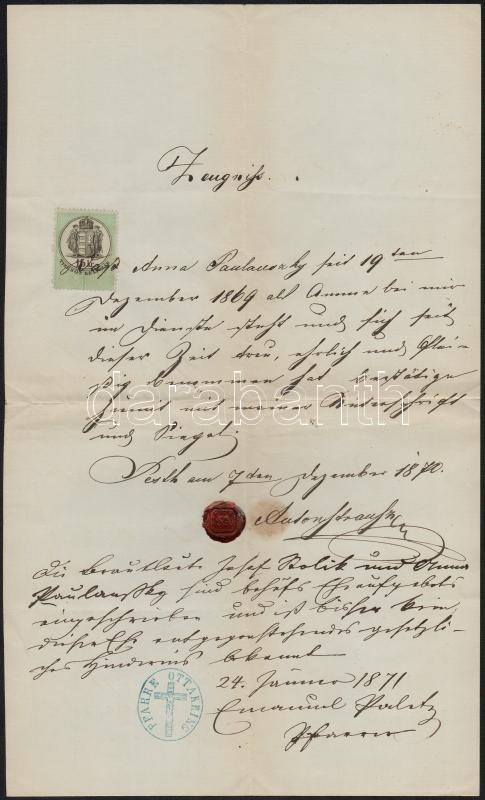 Zeugniß.
Daß Anna Paulanszky seit 19ten
Dezember 1869 als Amme bei mir
im Dienste steht und sich seit
dieser Zeit treu, ehrlich und flei-
ßig benommen hat bestätige
hiemit mit meiner Unterschrift
und Siegel.
Pesth am 7ten Dezember 1870.
Anton
Die Brautleute Josef Stolik und Anna
Paulanßky sind behufs Eheaufgebots
eingeschrieben und ist bisher kein
dieser Ehe entgegenstehendes gesetzli-
ches Hinderniß bekannt
24. Jänner 1871
PFARRE OTTAKRING
Emanuel Paletz
Pfarrer
darabanth